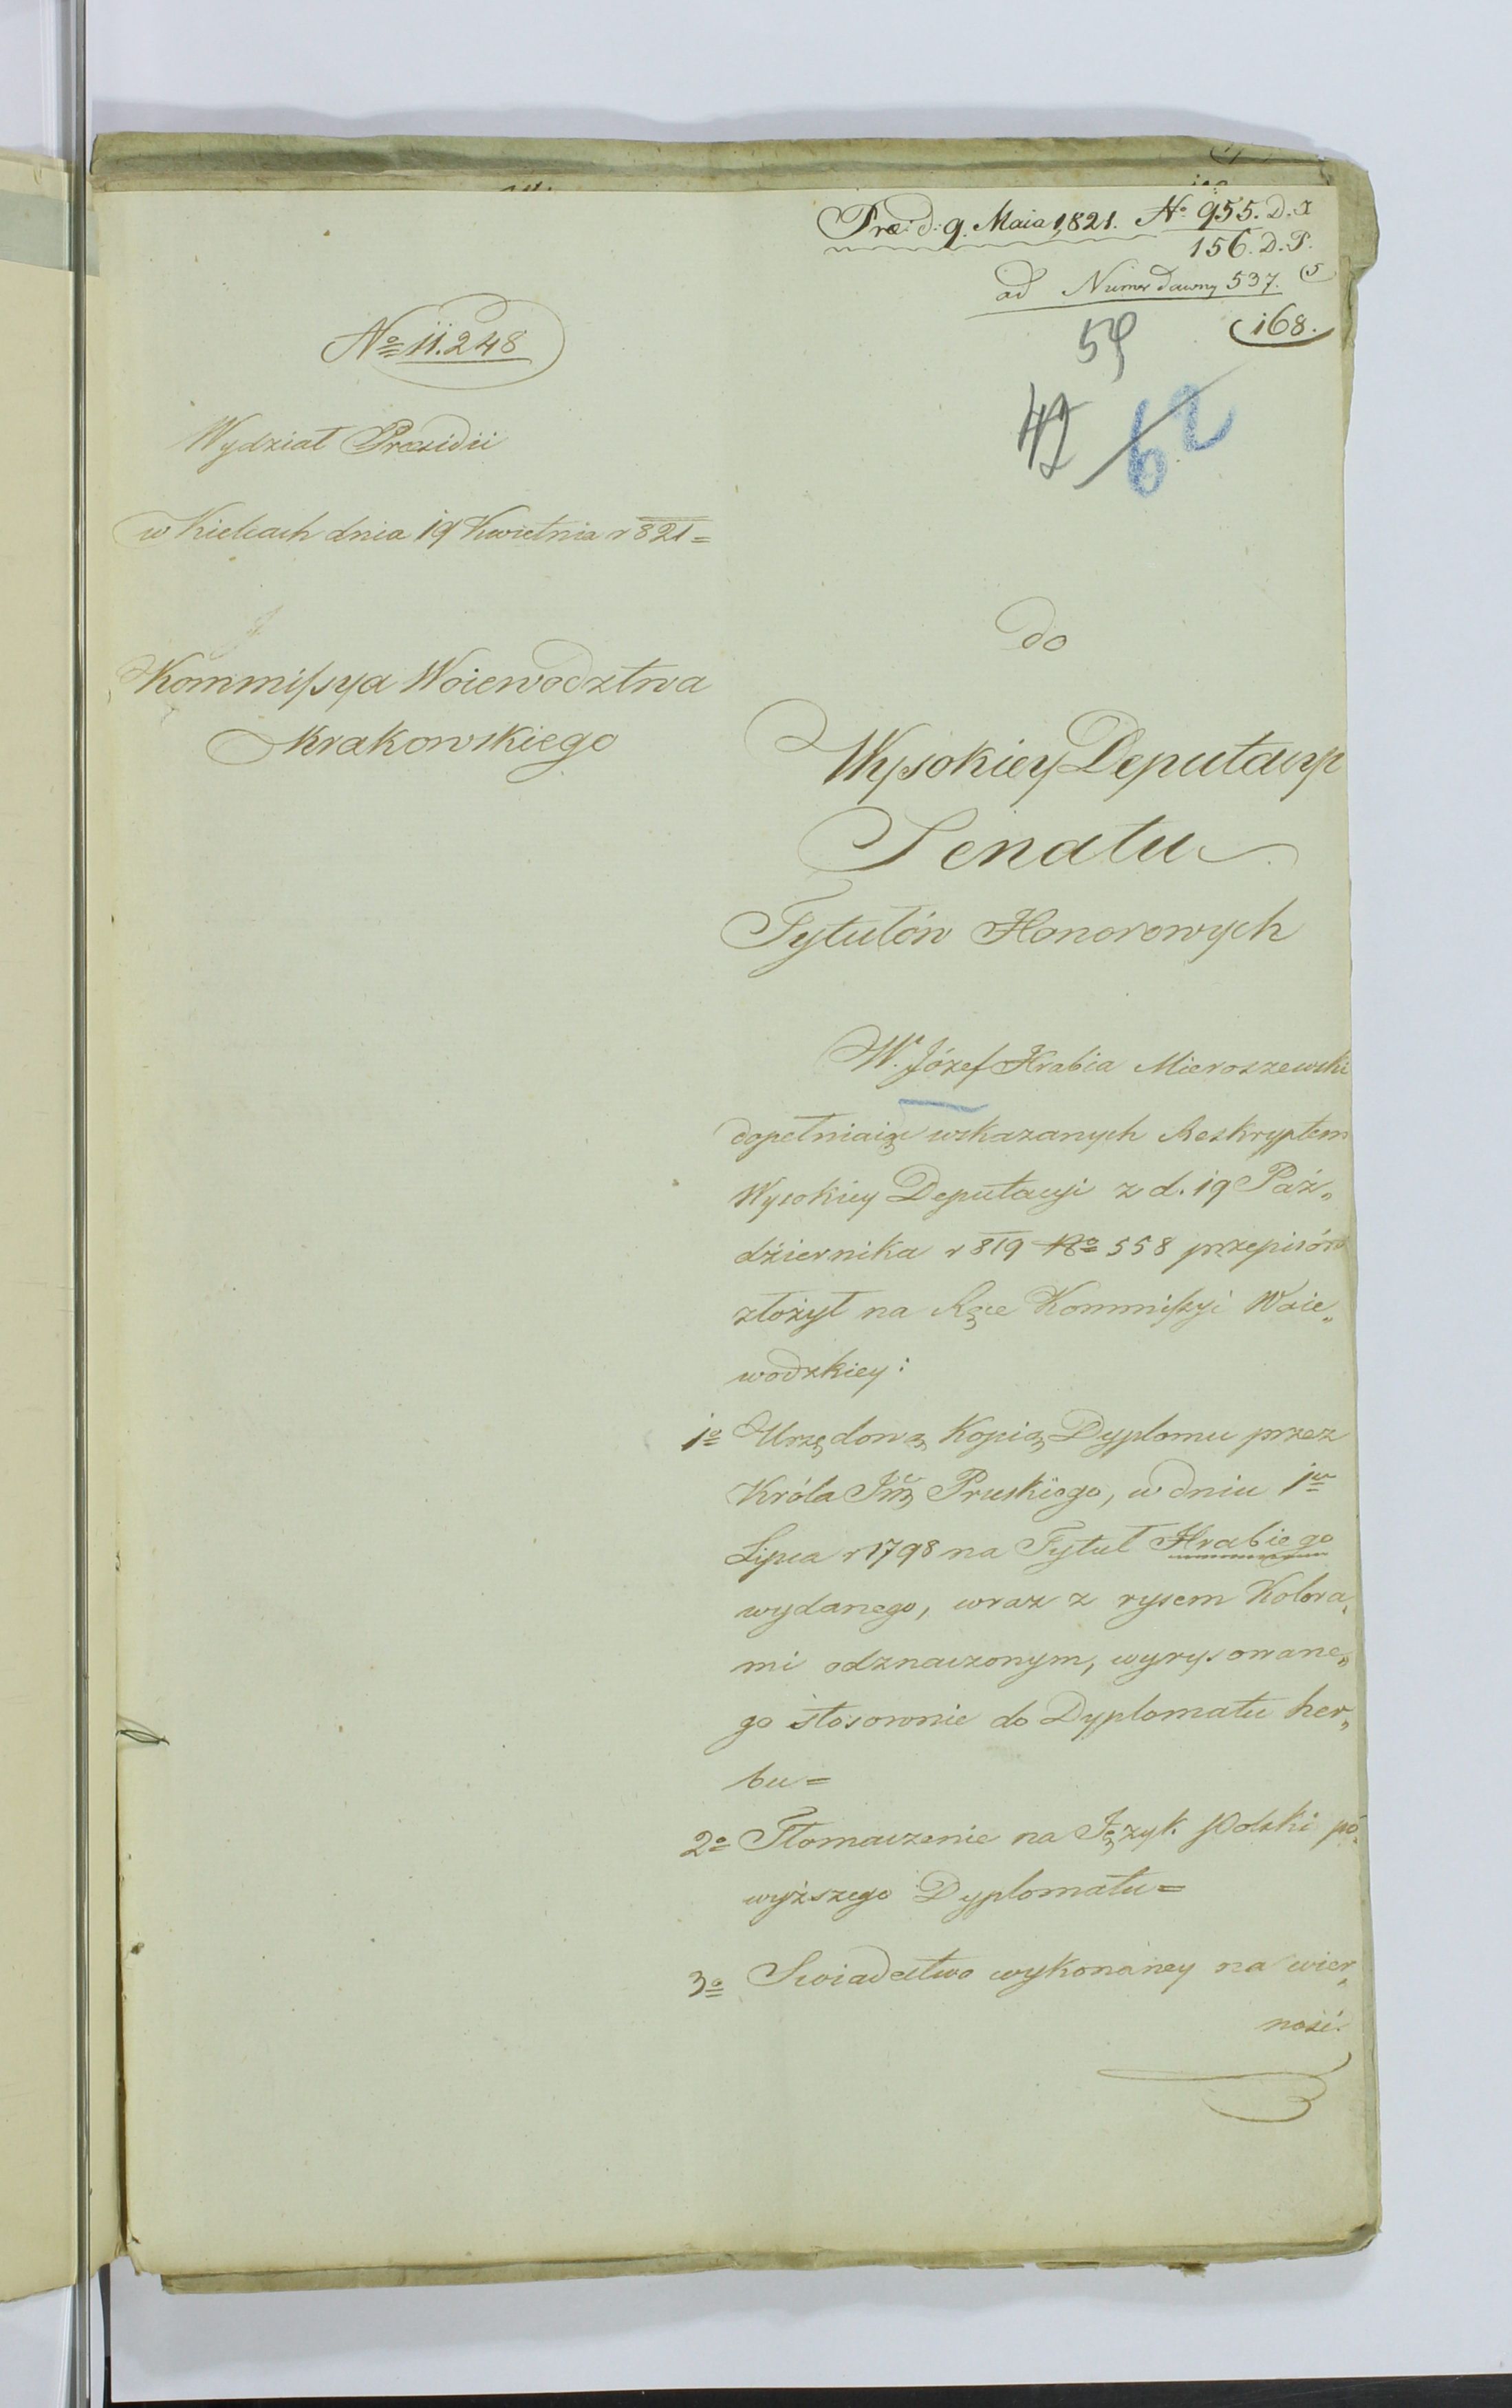 Præ: d: 9. Maia 1821. No 955. D. I
156. D. P.
ad Numer dawny 537.
168.
59
42
62
No 11.248
Wydział Præsidii
w Kielcach dnia 19 Kwietnia r 821=
Kommissya Woiewodztwa
Krakowskiego
do
Wysokiey Deputacyi
Senatu
Tytułów Honorowych
W. Józef Hrabia Mieroszewski
dopełniaiąc wskazanych Reskryptem
Wysokiey Deputacyi z d. 19 Paź„
dziernika r 819 No 558 przepisów
złożył na Ręce Kommissyi Woie„
wodzkiey:
1o Urzędową Kopią Dyplomu przez
Króla Jmć Pruskiego, w dniu 1m
Lipca r 1798 na Tytuł Hrabiego
wydanego, wraz z rysem Kolora„
mi odznaczonym, wyrysowane„
go stosownie do Dyplomatu her„
bu=
2o Tłomaczenie na Język Polski po„
wyższego Dyplomatu=
3o Swiadectwo wykonaney na wier„
ność